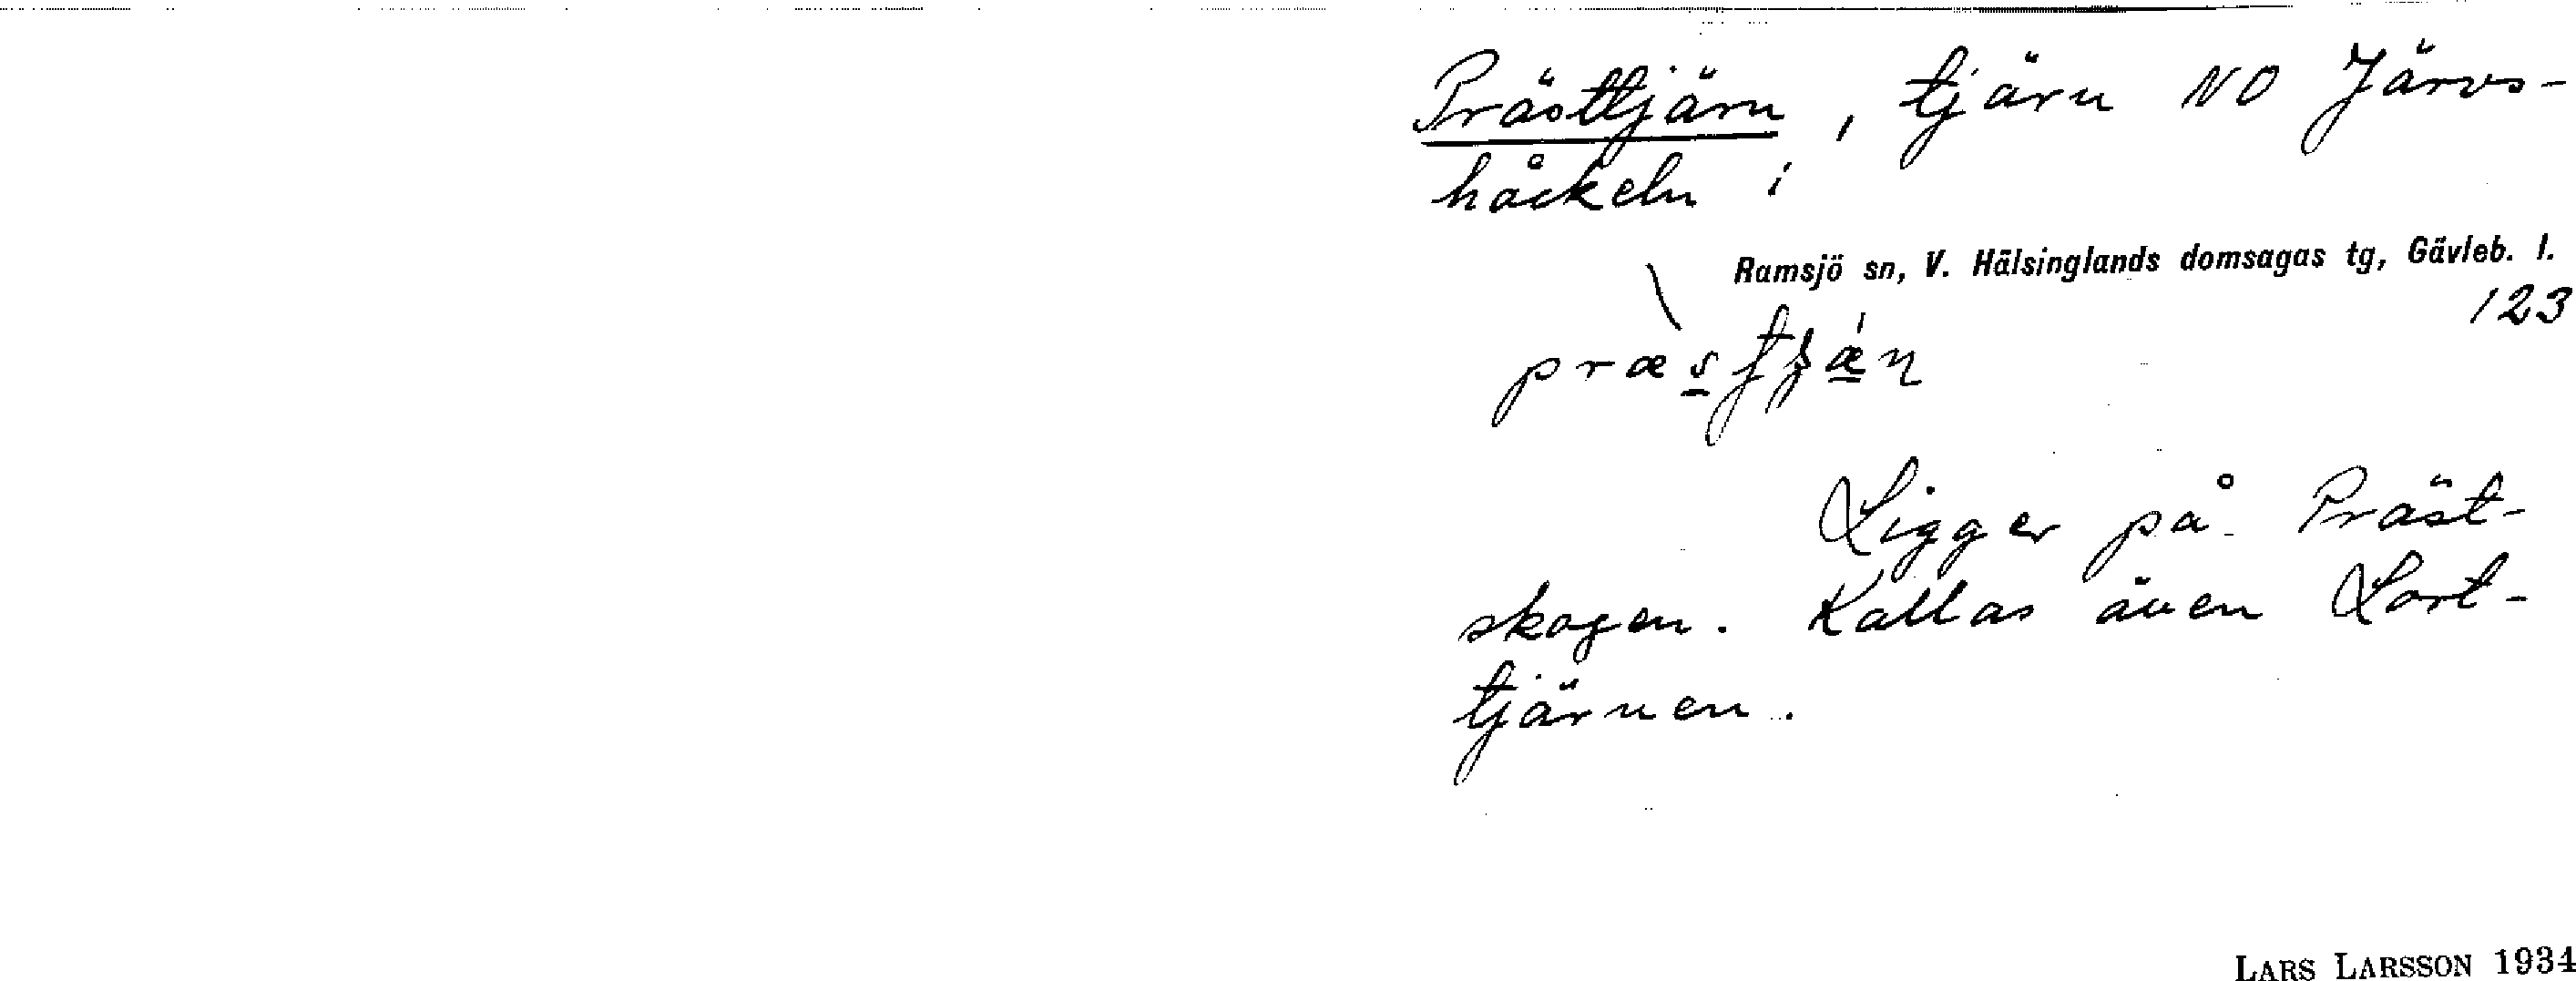 Prästtjärn, tjärn NO Järvs-
håckeln i
Ramsjö sn, V. Hälsinglands domsagas tg, Gävleb. l.
123
Ligger på Präst-
skogen. Kallas även Lort-
tjärnen.
LARS LARSSON 1934